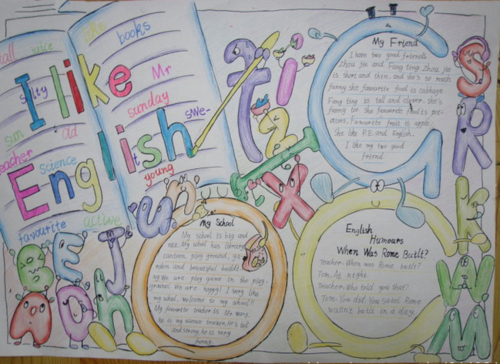 all
nice
like
books
I like
salty
Mr
sunday
sun
old
English
swe-
teacher
science
young
favourite
active
My Friend
I have two good friends
Zhou Jie and Fang Ting. Zhou Jie
is short and thin, and she's so much
funny. She favourite fruit is cabbage.
Fang Ting is tall and clever. she's
funny too. She favourite
favourite fruit is apple.
She like P.E. and English.
I like my two good
friend.
My School
My school is big and
nice. My school has library,
canteen, play ground,
and beautiful
we play games in the play
ground. We are happy! I love
my school. Welcome to my school!
My favourite teacher is
he is my science teacher. He's tall
and strong. He is very
funny.
English
Humours
When Was Rome Built?
Teacher: When was Rome built?
Tom: At night.
Teacher: Who told you that?
Tom: You did. You said Rome
wasn't built in a day.